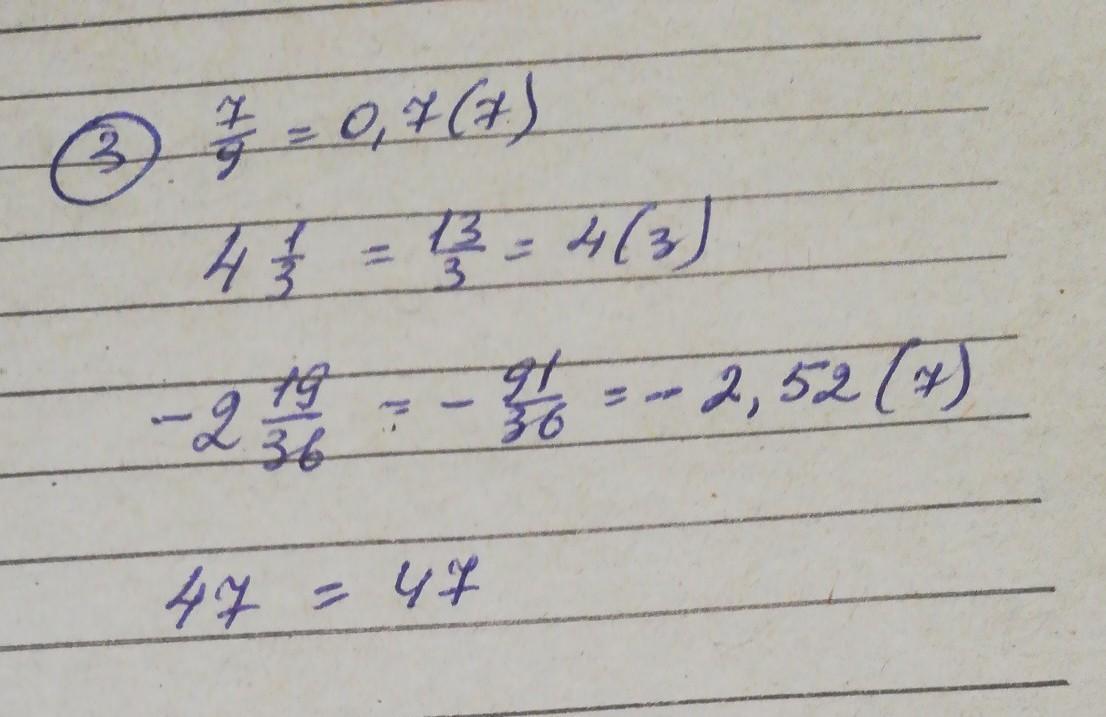 ③ 7/9 = 0,7(7)
4 1/3 = 13/3 = 4(3)
-2 19/36 = - 91/36 = - 2,52(7)
47 = 47